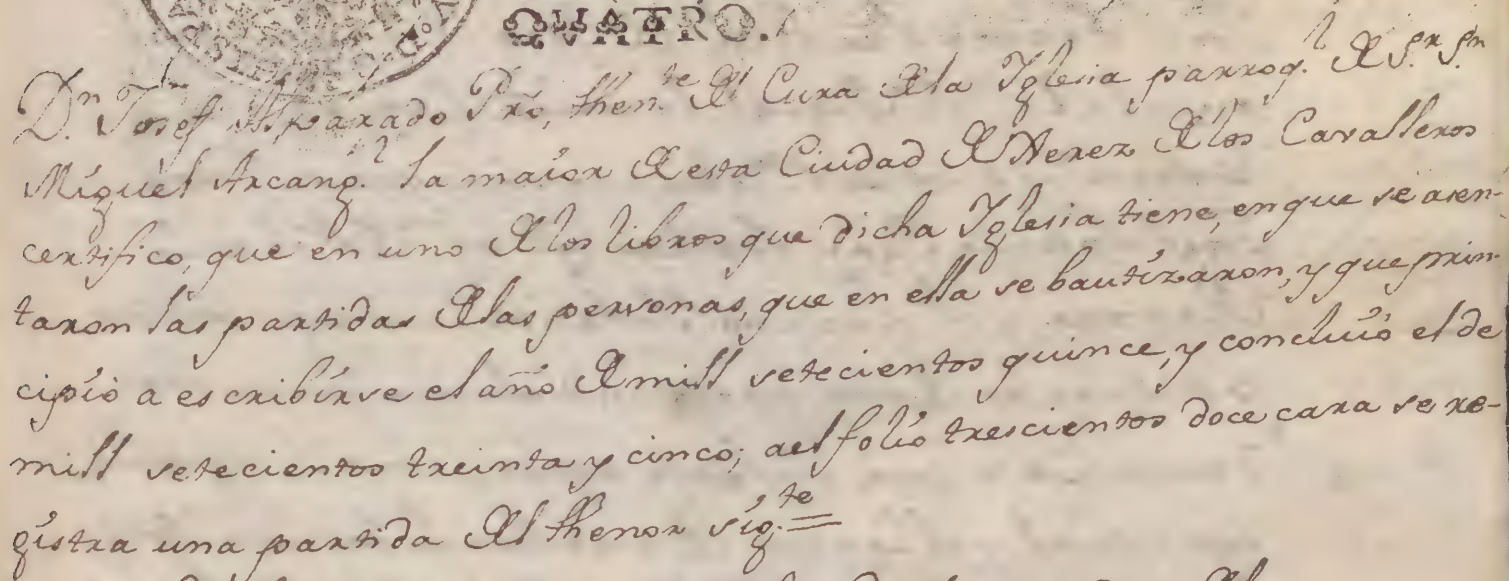 QVATRO.
D.n Josef Alvarado Pró, then.te del Cura de la Yglesia parroq.l de S.r S.n
Miguèl Arcang.l la maior de esta Ciudad de Xerez de los Cavalleros
certifico, que en uno de los libros que dicha Yglesia tiene, en que se asen-
taron las partidas de las personas, que en ella se bautizaron, y que prin-
cipiò a escribirse el año de mill setecientos quince, y concluiò el de
mill setecientos treinta y cinco; a el folio trescientos doce cara se re-
gistra una partida del thenor sig.te =